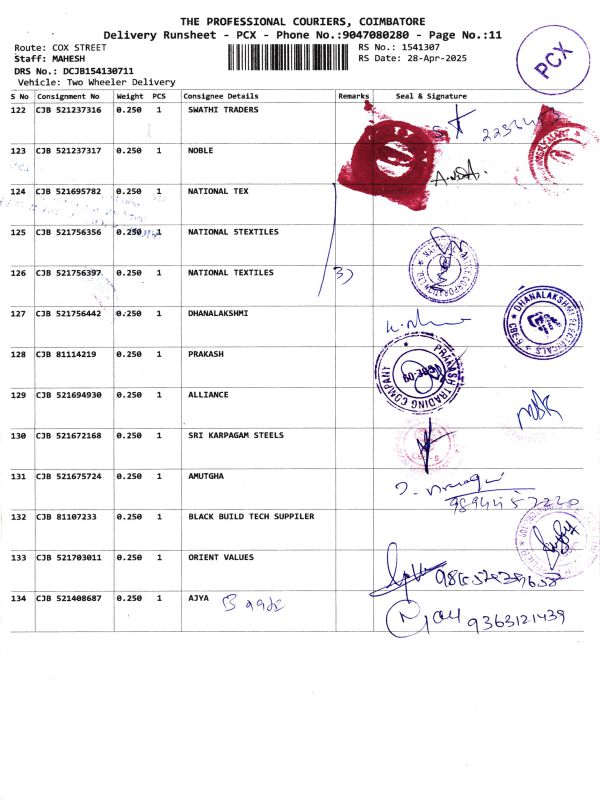 THE PROFESSIONAL COURIERS, COIMBATORE
Delivery Runsheet - PCX - Phone No.:9047080280 - Page No.:11
Route: COX STREET
Staff: MAHESH
DRS No.: DCJB154130711
Vehicle: Two Wheeler Delivery
RS No.: 1541307
RS Date: 28-Apr-2025
PCX
S No Consignment No Weight PCS Consignee Details Remarks Seal & Signature
122 CJB 521237316 0.250 1 SWATHI TRADERS
123 CJB 521237317 0.250 1 NOBLE
124 CJB 521695782 0.250 1 NATIONAL TEX
125 CJB 521756356 0.250 1 NATIONAL 5TEXTILES
126 CJB 521756397 0.250 1 NATIONAL TEXTILES 3)
127 CJB 521756442 0.250 1 DHANALAKSHMI
DHANALAKSHMI ELECTRICALS
128 CJB 81114219 0.250 1 PRAKASH
PRAKASH TRADING COMPANY
129 CJB 521694930 0.250 1 ALLIANCE
130 CJB 521672168 0.250 1 SRI KARPAGAM STEELS
131 CJB 521675724 0.250 1 AMUTGHA
132 CJB 81107233 0.250 1 BLACK BUILD TECH SUPPILER
133 CJB 521703011 0.250 1 ORIENT VALUES
134 CJB 521408687 0.250 1 AJYA
9363121439